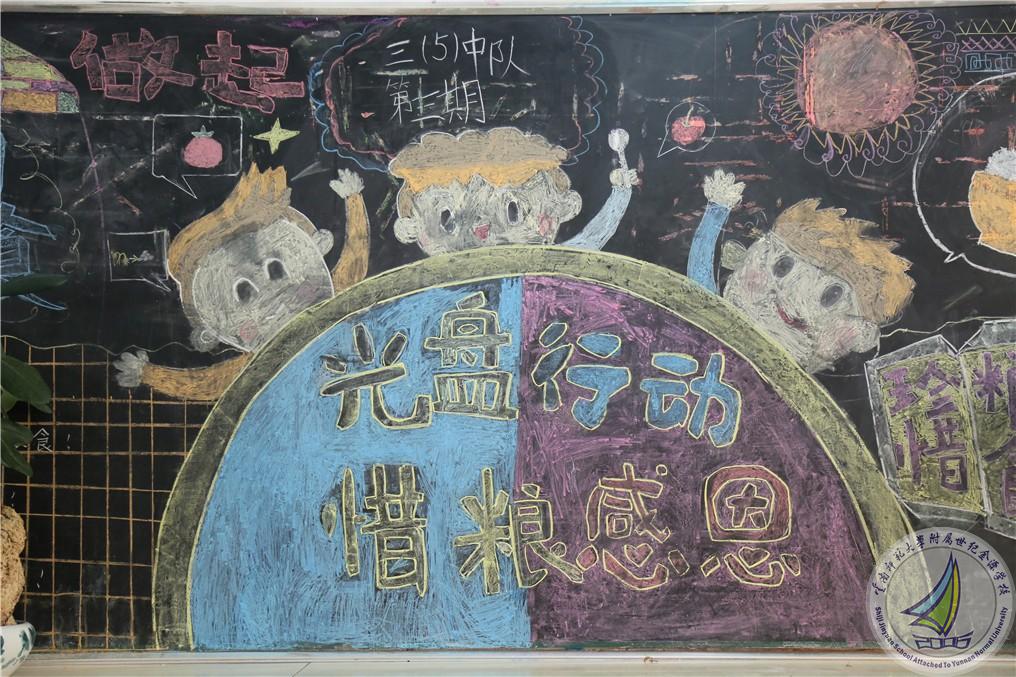 做起
三(5)中队
第三期
光盘行动
惜粮感恩
珍惜
粮
食
雲南師範大學附属世纪金源学校
Shiji Jinyuan School Attached To Yunnan Normal University
2006